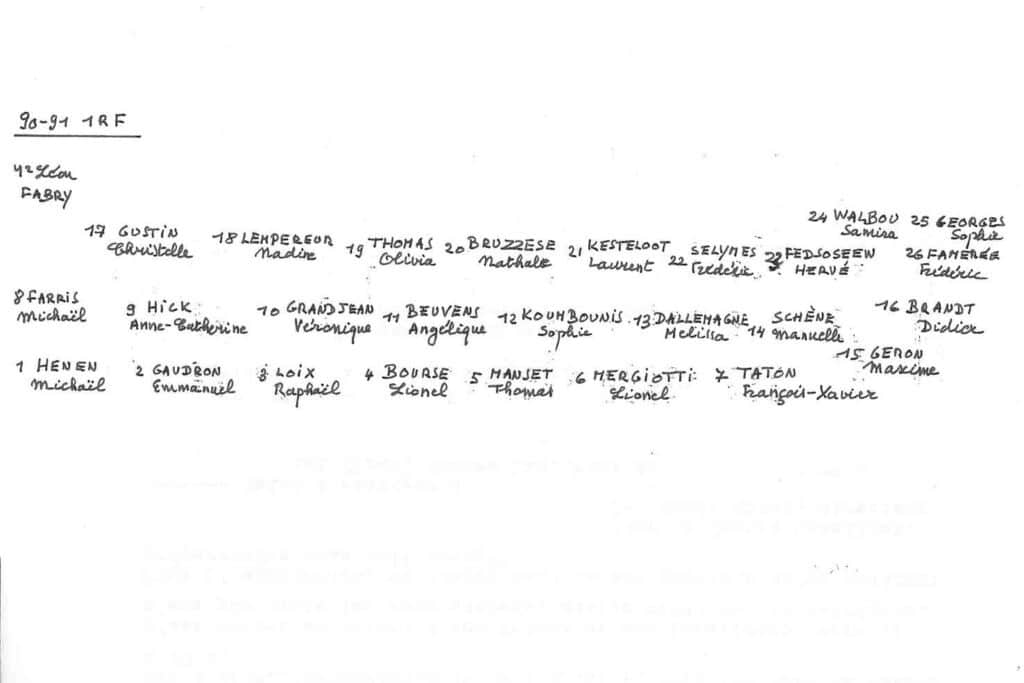 90-91 1RF
Léon
FABRY
24 WALBOU 25 GEORGES
Samira Sophie
17 GUSTIN 18 LEMPEREUR 19 THOMAS 20 BRUZZESE 21 KESTELOOT 22 SELYMES FEDSOSEEN 26 FAMERÉE
Christelle Nadine Olivia Nathalie Laurent Frédéric HERVÉ Frédéric
8 FARRIS 9 HICK 10 GRANDJEAN 11 BEUVENS 12 KOUMBOUNIS 13 DALLEMAGNE 14 SCHÈNE 16 BRANDT
Michaël Anne-Catherine Véronique Angélique Sophie Melissa Manuelle Didier
15 GERON
Maxime
1 HENEN 2 GAUDRON 3 LOIX 4 BOURSE 5 MANSET 6 MERGIOTTI 7 TATON
Michaël Emmanuël Raphaël Lionel Thomas Lionel François-Xavier